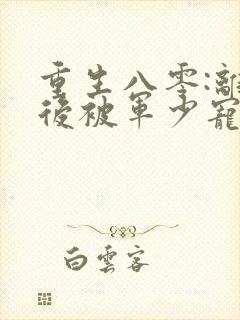 重生八零:離
後被軍少寵
白雲客